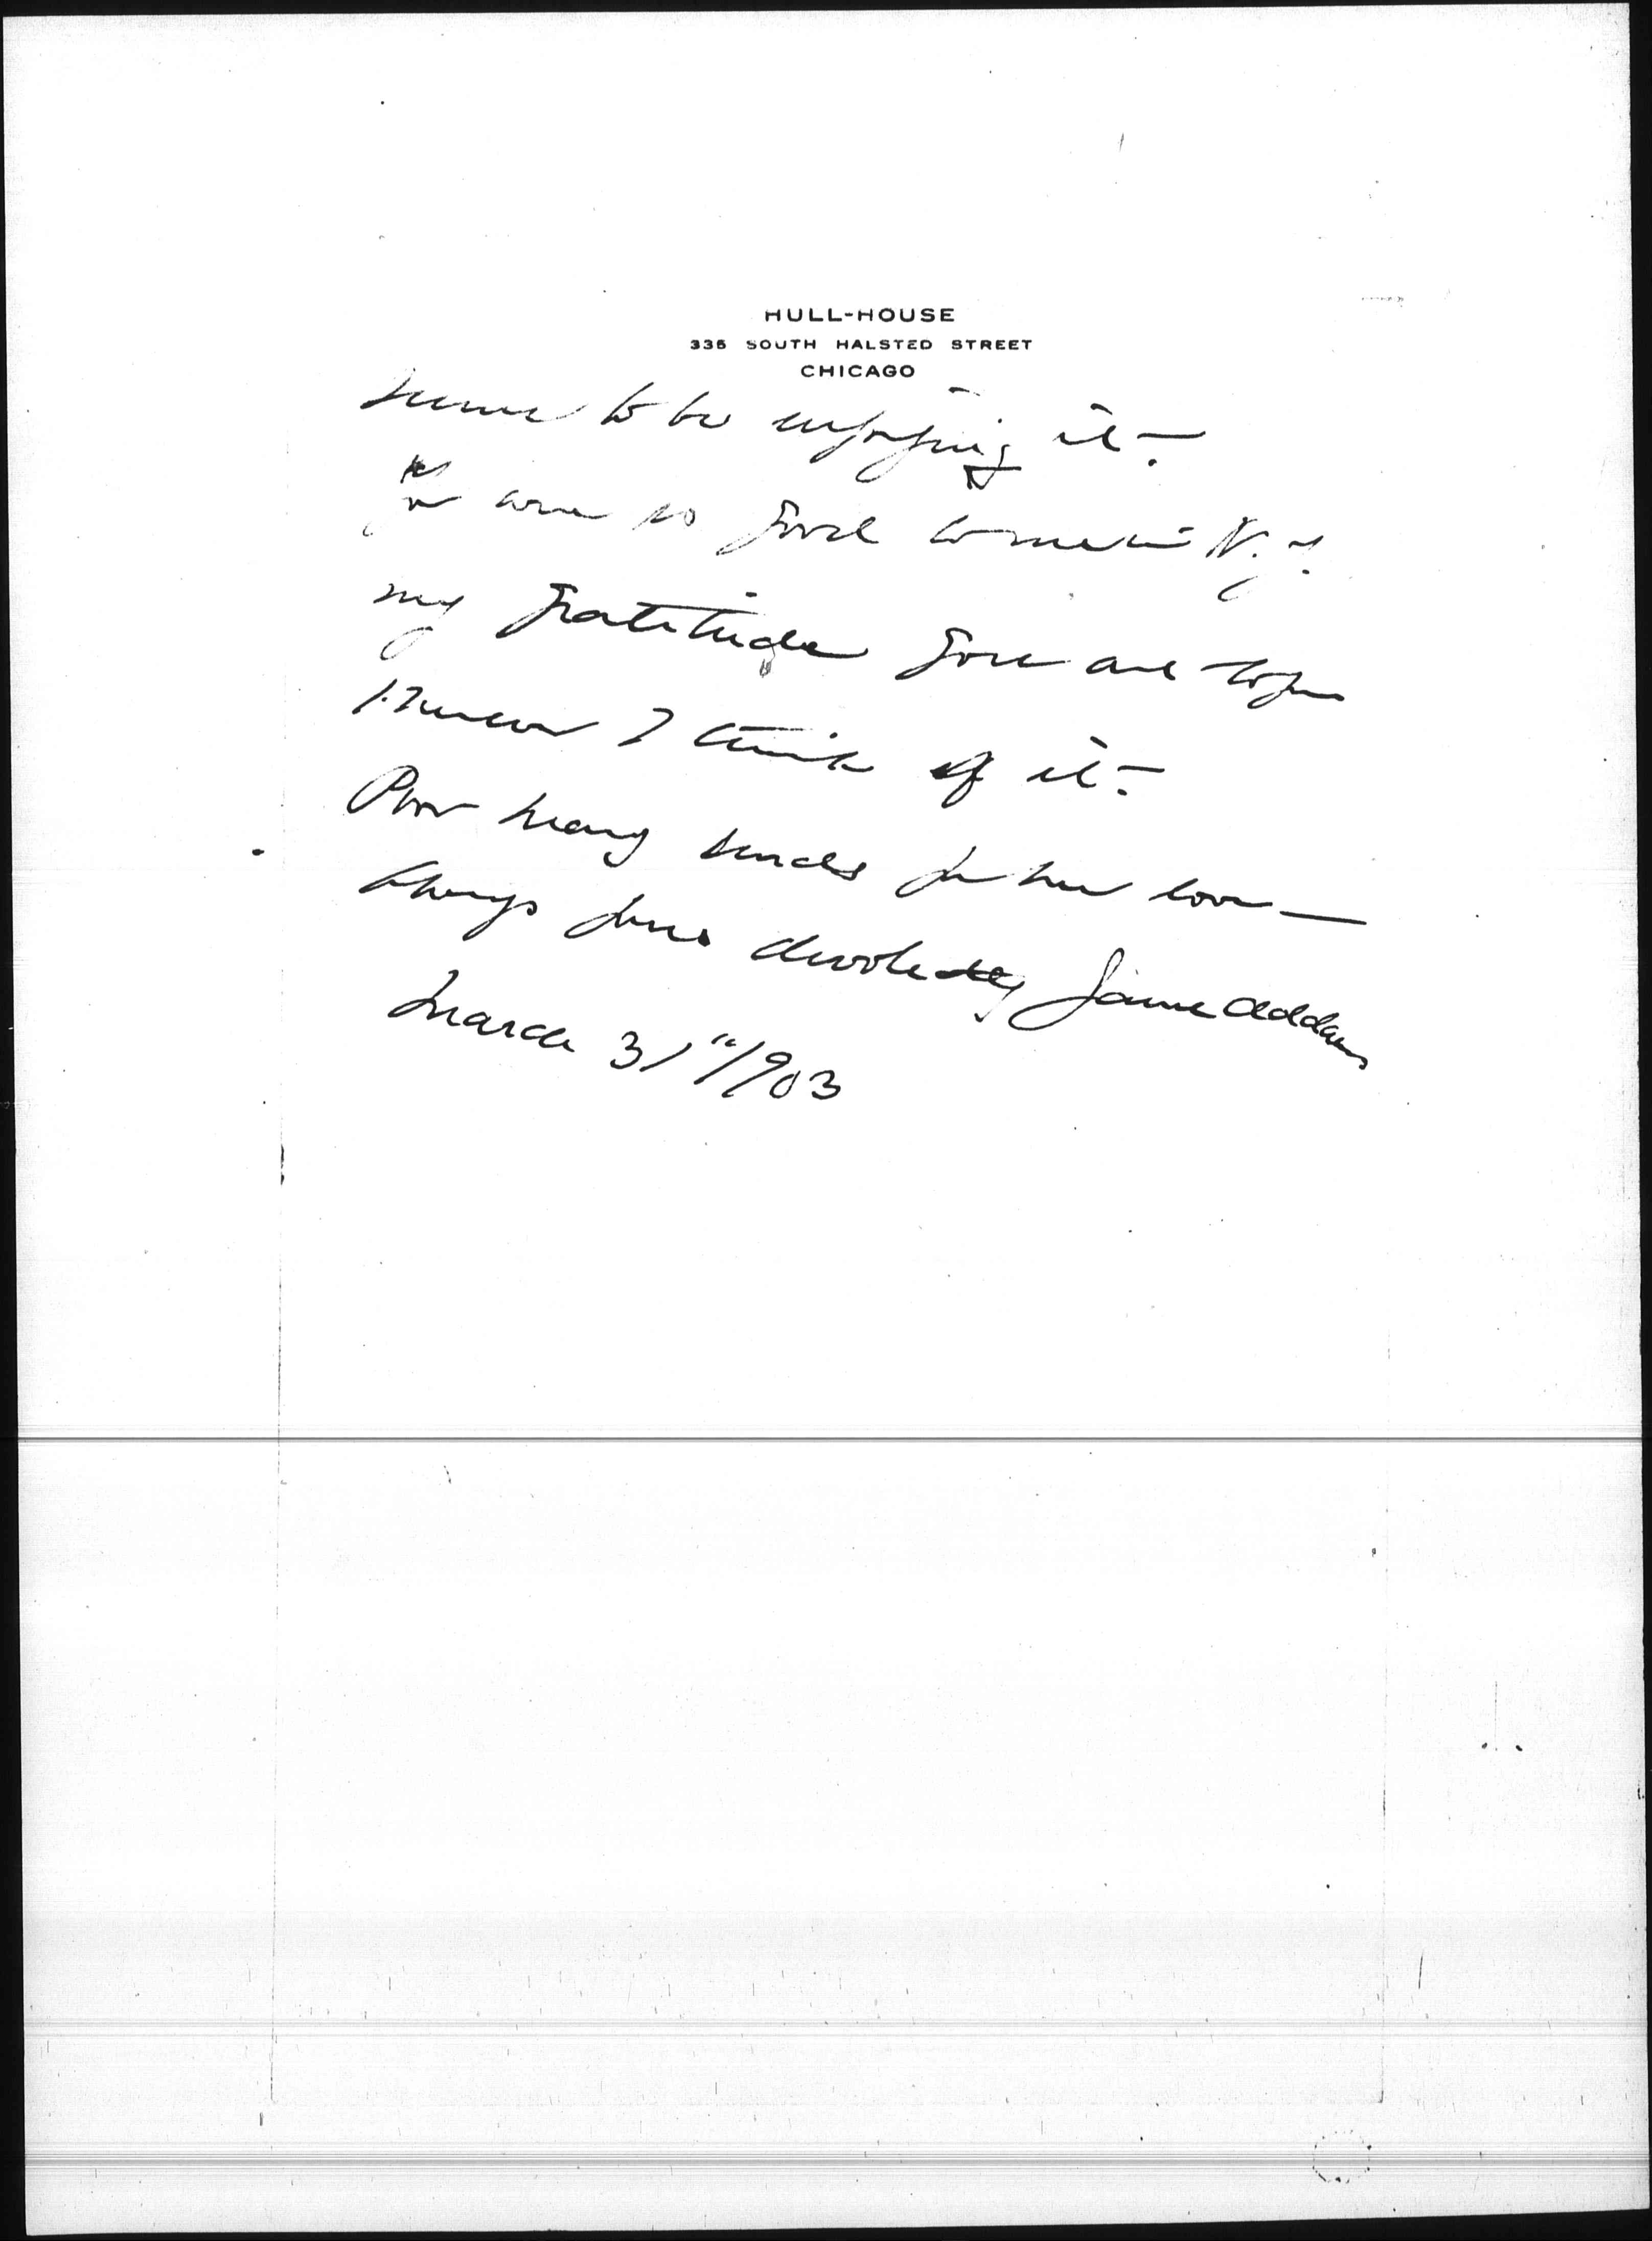 HULL-HOUSE
335 SOUTH HALSTED STREET
CHICAGO
seems to be enjoying it -
You are so good to me in N.Y.
my gratitude goes out to you
whenever I think of it -
Poor Mary sends you her love —
Always yours devotedly Jane Addams
March 31" 1903